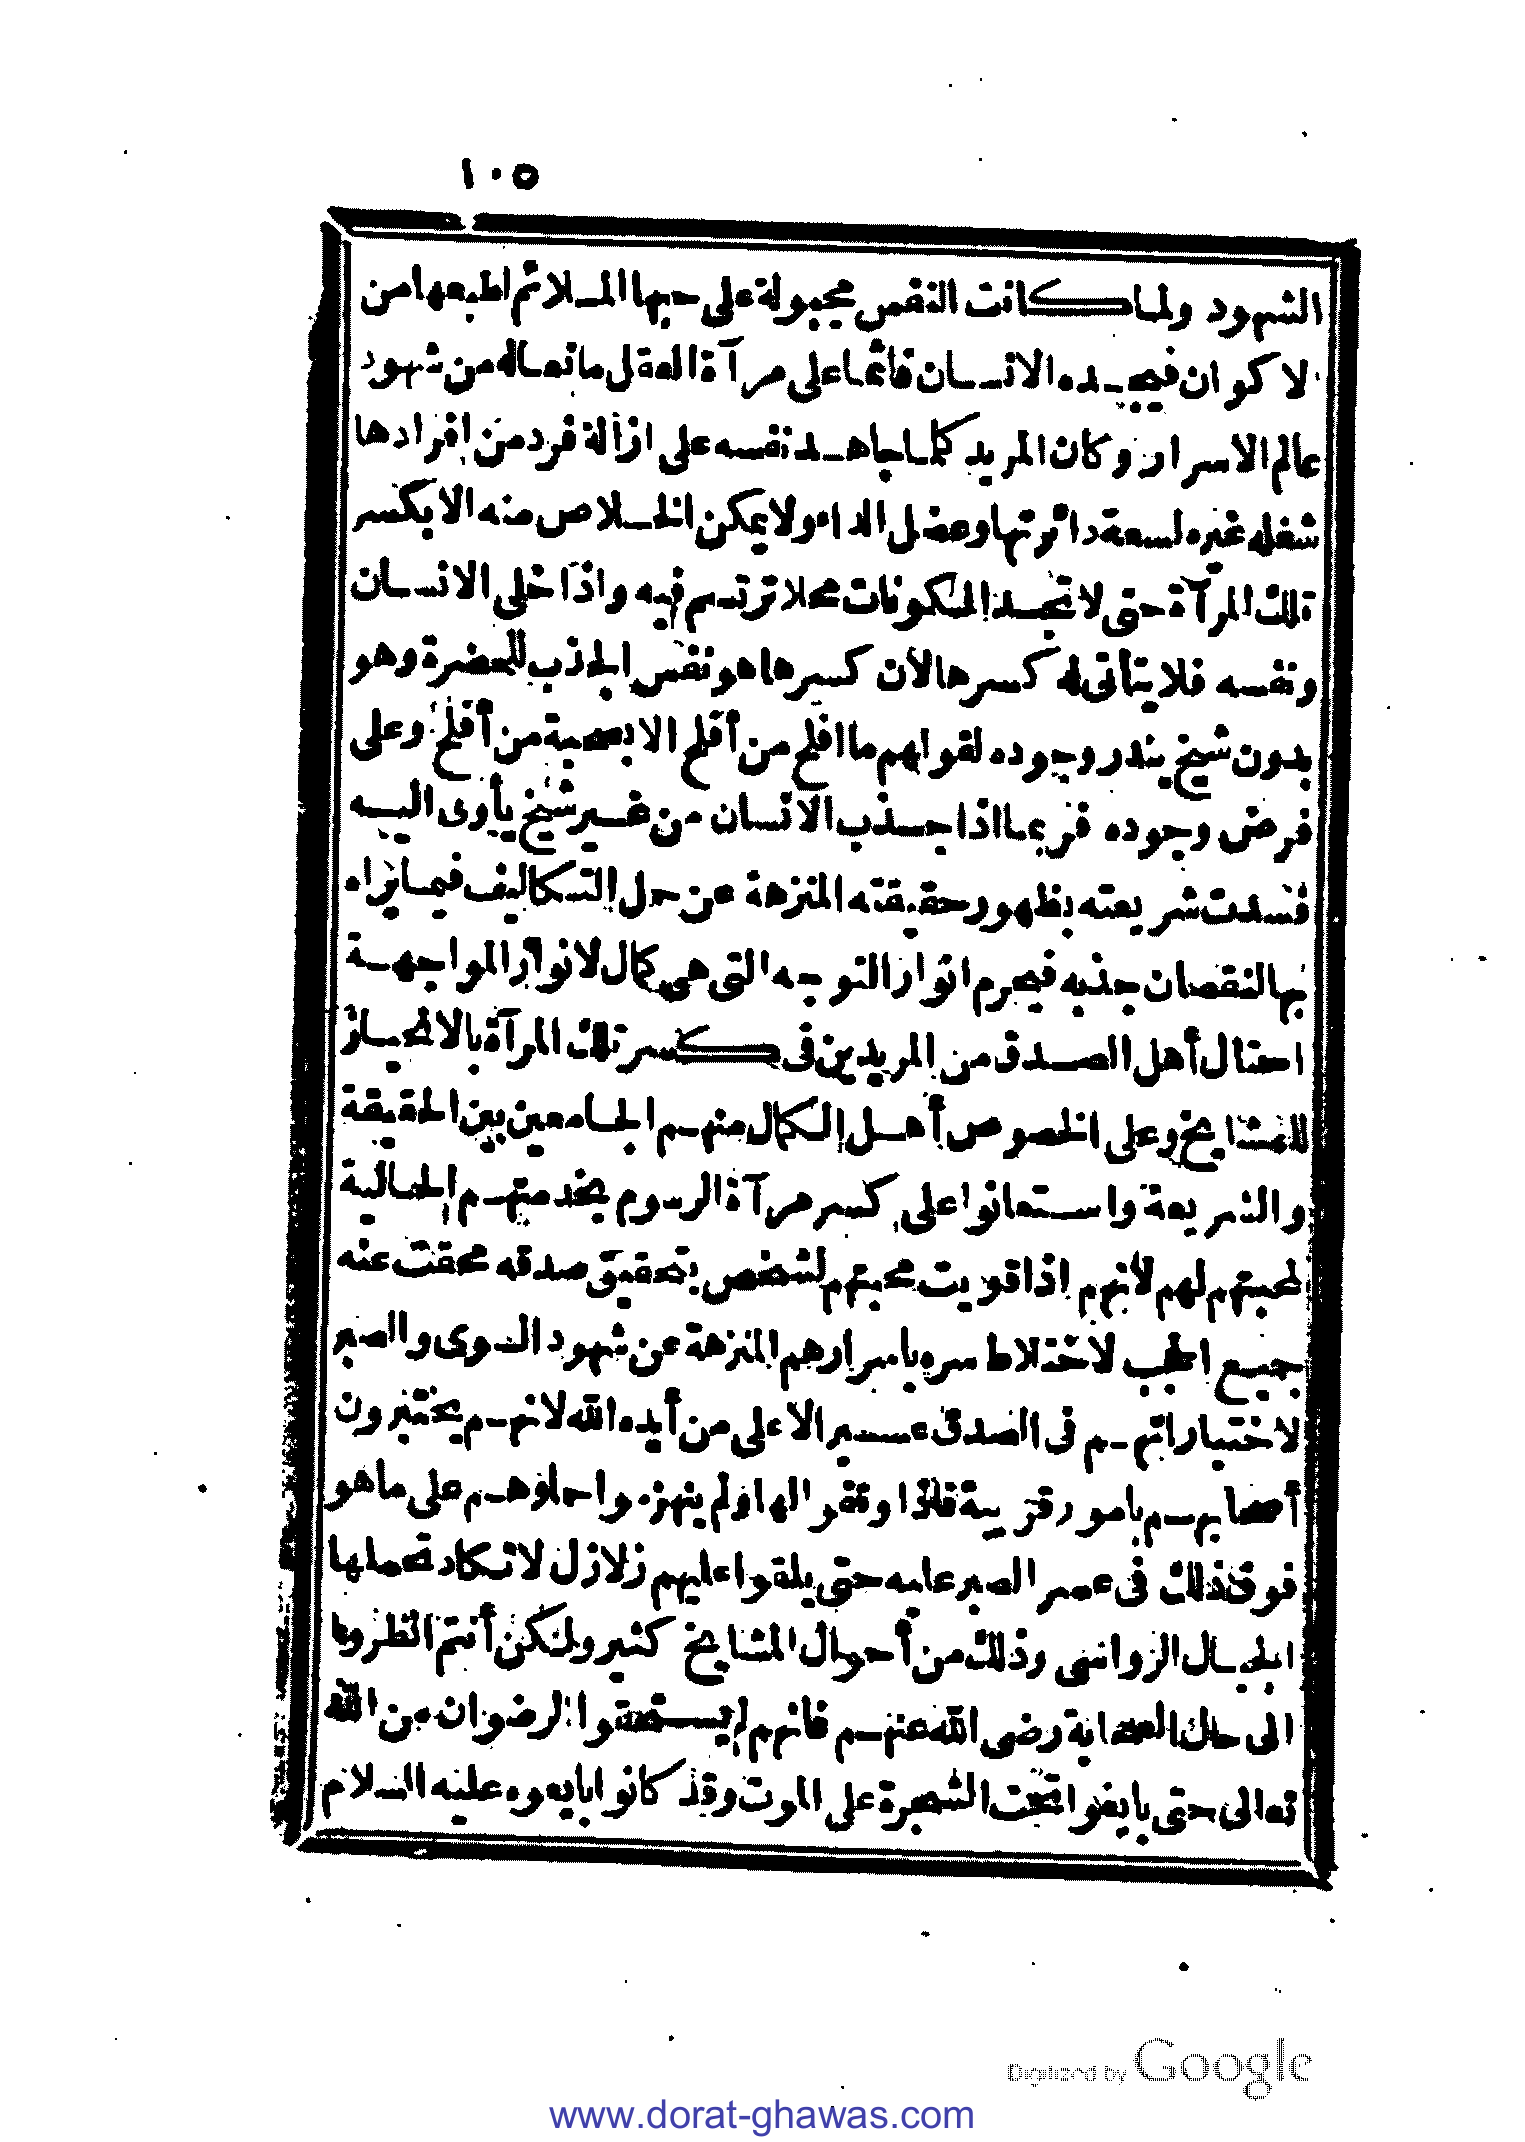 ١٠٥
الشهود ولما كانت النفس مجبولة على حبها الملائم لطبعها من
الاكوان فيجده الانسان قائما على مرآة العقل مانعاله من شهود
عالم الاسرار وكان المريد كلما جاهد نفسه على ازالة فرد من افرادها
شغله غيره لسعة دائرتها وعضل الداء ولا يمكن الخلاص منه الا بكسر
تلك المرآة حتى لا تجد المكونات محلا ترتسم فيه واذا خلى الانسان
ونفسه فلا يتأتى له كسرها لان كسرها هو نفس الجذب للحضرة وهو
بدون شيخ يندر وجوده لقولهم ما افلح من أفلح الا بصحبة من أفلح وعلى
فرض وجوده فربما اذا جذب الانسان من غير شيخ يأوى اليه
فسدت شريعته بظهور حقيقته المنزهة عن حل التكاليف فيما يراه
بها لنقصان جذبه فيحرم انوار التوجه التى هى كمال لانوار المواجهة
احتال أهل الصدق من المريدين فى كسر تلك المرآة بالانحياز
للمشايخ وعلى الخصوص أهل الكمال منهم الجامعين بين الحقيقة
والشريعة واستعانوا على كسر مرآة الرسوم بخدمتهم الجالبة
لمحبتهم لهم لانهم اذا قويت محبتهم لشخص بتحقيق صدقه محقت عنه
جميع الحجب لاختلاط سره باسرارهم المنزهة عن شهود السوى والصبر
لاختباراتهم فى الصدق عسير الا على من أيده الله لانهم يختبرون
أصحابهم بامور قريبة فاذا وقفوا لها ولم ينهزموا حملوهم على ما هو
فوق ذلك فى عصر الصبر عليه حتى يلقوا عليهم زلازل لا تكاد تحملها
الجبال الرواسى وذلك من أحوال المشايخ كثير ولكن أنتم انظروا
الى حال الصحابة رضى الله عنهم فانهم لم يستحقوا الرضوان من الله
تعالى حتى بايعوا تحت الشجرة على الموت وقد كانوا بايعوه عليه السلام
Digitized by Google
www.dorat-ghawas.com